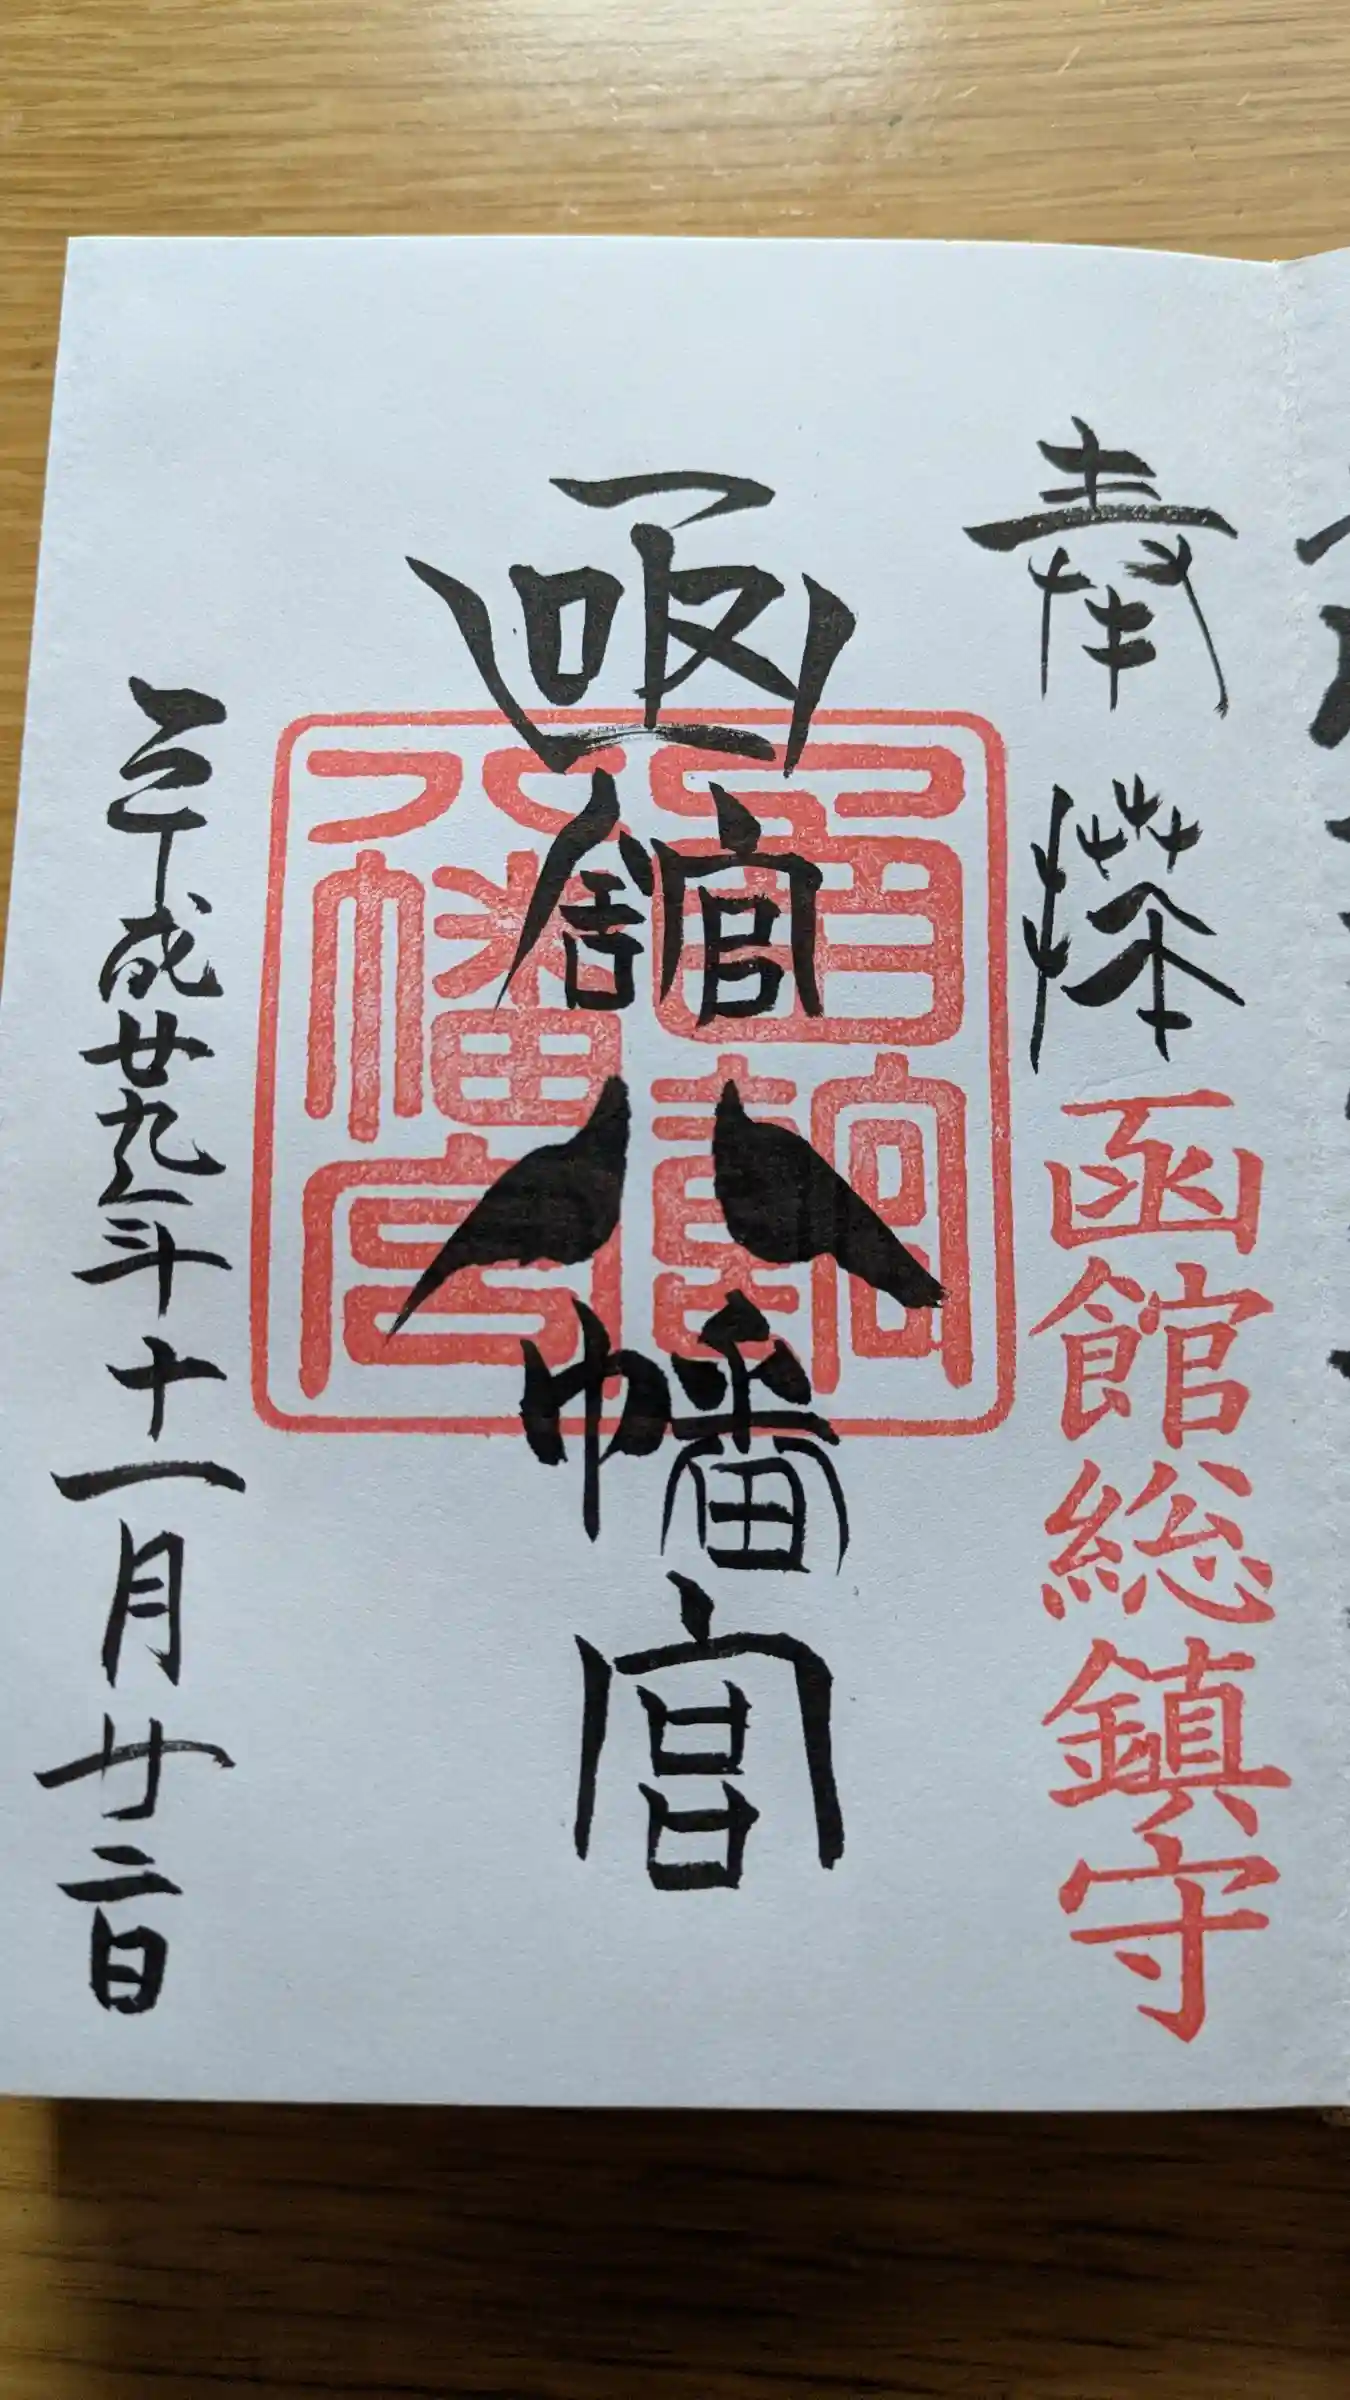 奉拝 函館総鎮守
函館八幡宮
函館八幡宮
平成廿九年十一月廿二日